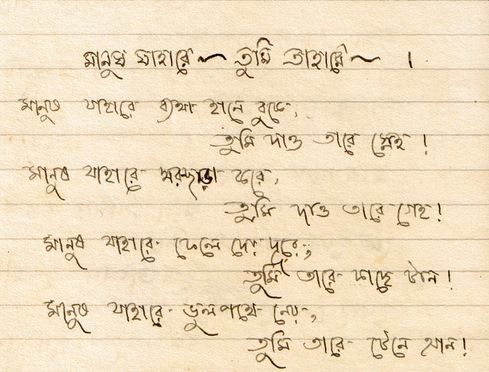 মানুষ যাহারে~ তুমি তাহারে~ ।
মানুষ যাহারে ব্যথা হানে বুকে,
তুমি দাও তারে স্নেহ !
মানুষ যাহারে ঘরছাড়া করে,
তুমি দাও তারে গেহ !
মানুষ যাহারে ফেলে দেয় দূরে,
তুমি তারে কাছে টান !
মানুষ যাহারে ভুলপথে নেয়,
তুমি তারে টেনে আন !